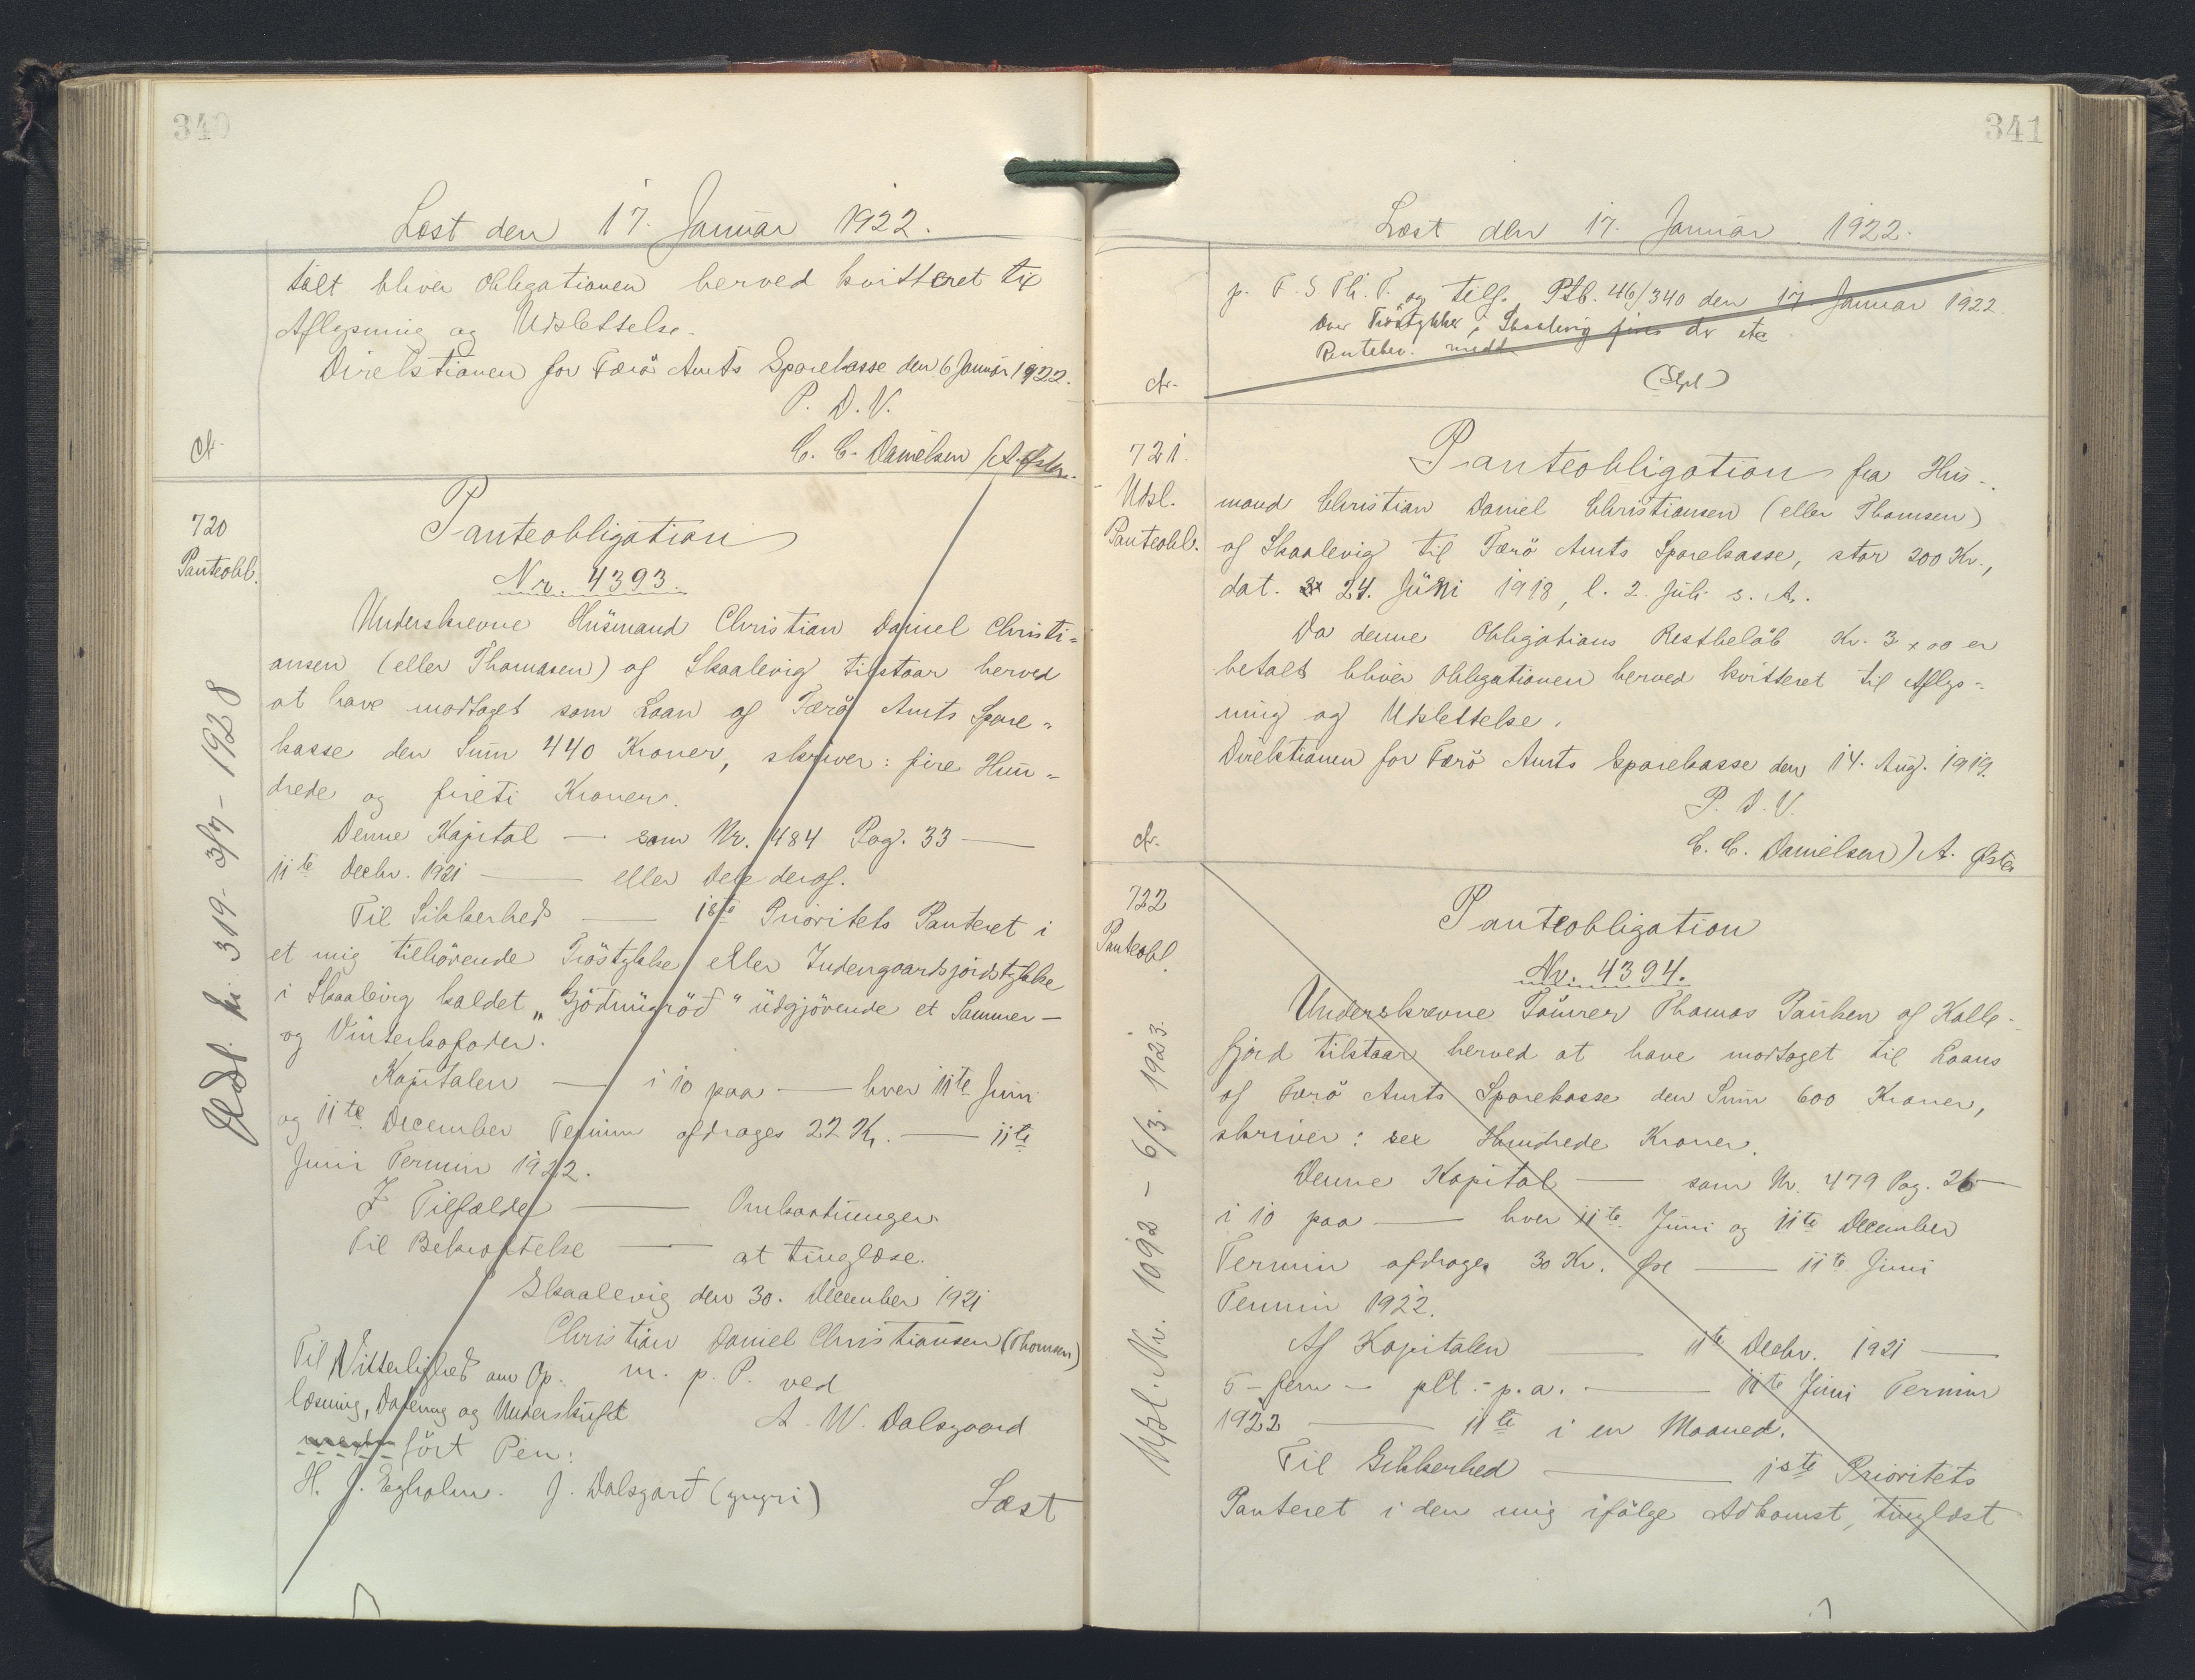 340
Læst den 17. Januar 1922.
talt bliver Obligationen herved kvitteret til
Aflysning og Udslettelse.
Direktionen for Færö Amts Sparekasse den 6 Januar 1922.
P. D. V.
C. C. Danielsen / A.
720
Panteobl.
Panteobligation
Nr. 4393.
Underskrevne Husmand Christian Daniel Christi=
ansen (eller Thomasen) af Skaalevig tilstaar herved
at have modtaget som Laan af Færö Amts Spare=
kasse den Sum 440 Kroner, skriver: fire Hun=
drede og fireti Kroner.
Denne Kapital — som Nr. 484 Pag. 33 —
11te Decbr. 1921 — eller Dele deraf.
Til Sikkerhed — 1ste Prioritets Panteret i
et mig tilhörende Tröstykke eller Indengaardsjordstykke
i Skaalevig kaldet „ “ udgjörende et Sommer-
og Vinterkofoder.
Kapitalen — i 10 paa — hver 11te Juni
og 11te December Termin afdrages 22 Kr. — 11te
Juni Termin 1922.
I Tilfælde — Omkostninger.
Til Bekræftelse — at tinglæse.
Skaalevig den 30. December 1921
Christian Daniel Christiansen (Thomsen)
m. p. P. ved
A. W. Dalsgaard
Til Vitterlighed om Op-
læsning, Datering og Underskrift
fört Pen:
H. J. Egholm. J. Dalsgarð (yngri)
Læst
Udsl. Nr. 319 - 3/7 - 1928
341
Læst den 17. Januar 1922.
p. F. S Th. P. og tilf. Ptb. 46/340 den 17 Januar 1922
over Tröstykket i Skaalevig fins der etc
Rentebev. medd.
721.
Udsl.
Panteobl.
Panteobligation fra Hus-
mand Christian Daniel Christiansen (eller Thomsen)
af Skaalevig til Færö Amts Sparekasse, stor 200 Kr.,
dat. 24. Juni 1918, l. 2. Juli s. A.
Da denne Obligations Restbelöb Kr. 3 x 00 er
betalt bliver Obligationen herved kvitteret til Aflys=
ning og Udslettelse.
Direktionen for Færö Amts Sparekasse den 14. Aug. 1919.
P. D. V.
C. C. Danielsen / A.
722
Panteobl.
Panteobligation
Nr. 4394.
Underskrevne Tömrer Thomas Paulsen af Kolle-
fjord tilstaar herved at have modtaget til Laans
af Færö Amts Sparekasse den Sum 600 Kroner,
skriver: sex Hundrede Kroner.
Denne Kapital — som Nr. 479 Pag. 26 —
i 10 paa — hver 11te Juni og 11te December
Termin afdrages 30 Kr. — 11te Juni
Termin 1922.
Af Kapitalen — 11te Decbr. 1921 —
5 - fem - pCt. p. a. — 11te Juni Termin
1922 — 11te i en Maaned.
Til Sikkerhed — 1ste Prioritets
Panteret i den mig ifölge Adkomst, tinglæst
Udsl. Nr. 1092 - 6/3. 1923.